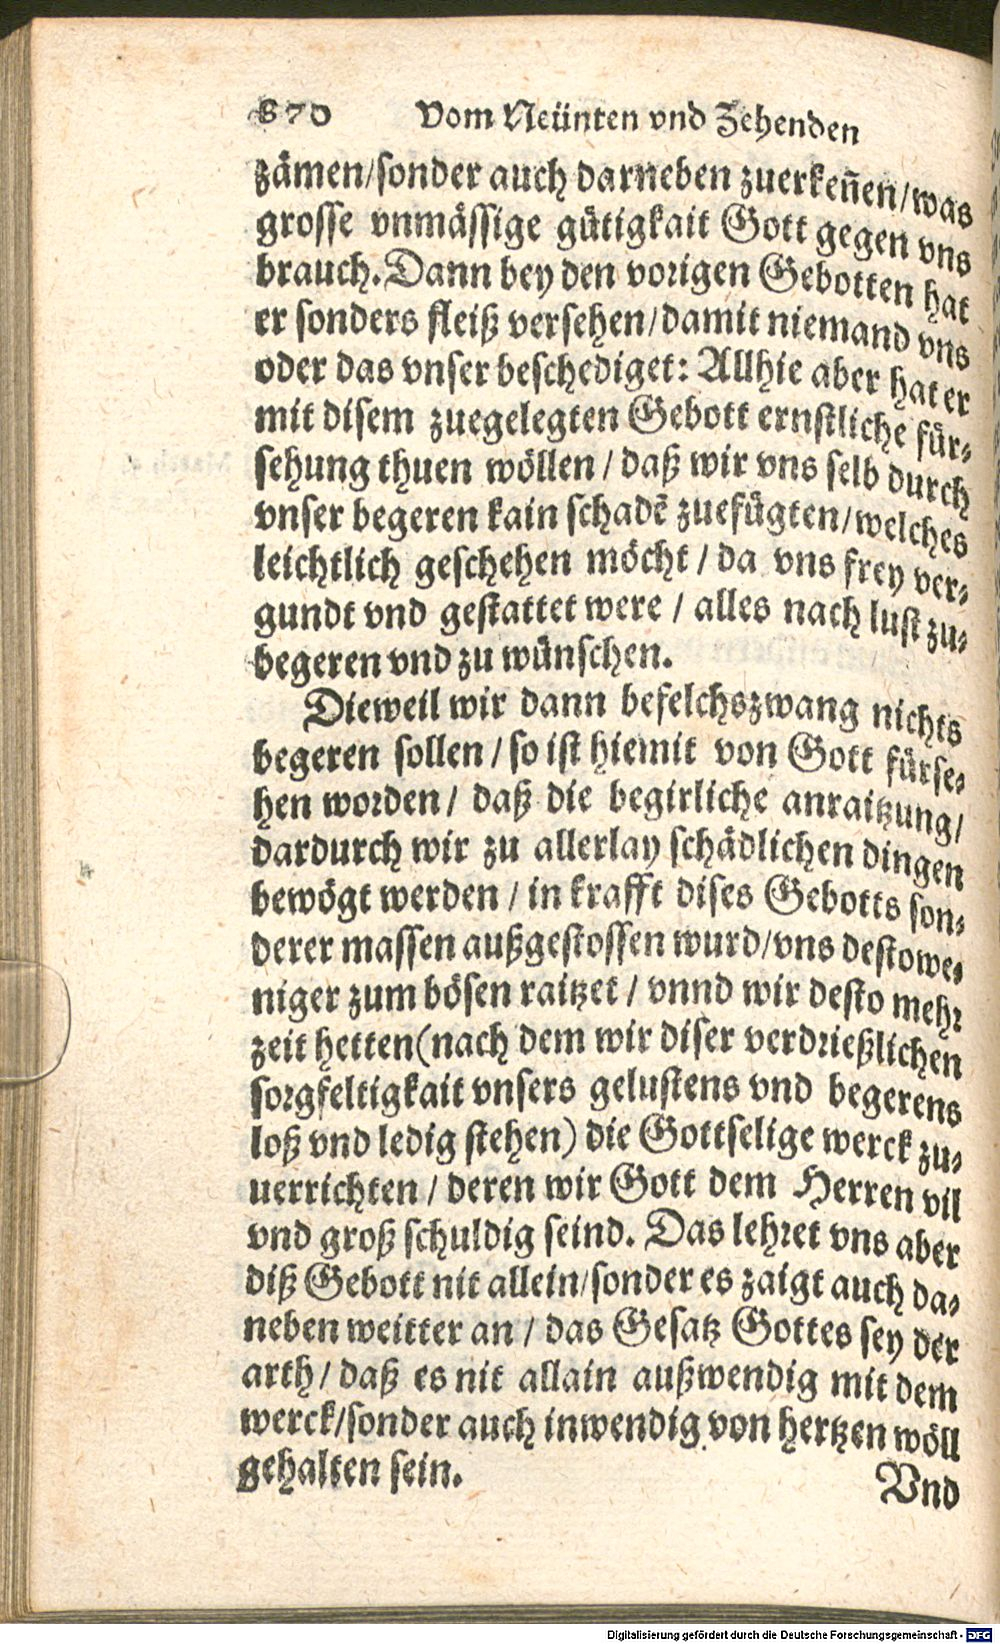 870 Vom Neünten vnd Zehenden
zämen/sonder auch darneben zuerkeñen/was
grosse vnmässige gütigkait Gott gegen vns
brauch. Dann bey den vorigen Gebotten hat
er sonders fleiß versehen/damit niemand vns
oder das vnser beschediget: Allhie aber hat er
mit disem zuegelegten Gebott ernstliche für-
sehung thuen wöllen / daß wir vns selb durch
vnser begeren kain schadē zuefügten/welches
leichtlich geschehen möcht / da vns frey ver-
gundt vnd gestattet were / alles nach lust zu-
begeren vnd zu wünschen.
Dieweil wir dann befelchszwang nichts
begeren sollen / so ist hiemit von Gott fürse-
hen worden / daß die begirliche anraitzung/
dardurch wir zu allerlay schädlichen dingen
bewögt werden / in krafft dises Gebotts son-
derer massen außgestossen wurd/vns destowe-
niger zum bösen raitzet / vnnd wir desto mehr
zeit hetten (nach dem wir diser verdrießlichen
sorgfeltigkait vnsers gelustens vnd begerens
loß vnd ledig stehen) die Gottselige werck zu-
uerrichten / deren wir Gott dem Herren vil
vnd groß schuldig seind. Das lehret vns aber
diß Gebott nit allein/sonder es zaigt auch da-
neben weitter an / das Gesatz Gottes sey der
arth / daß es nit allain außwendig mit dem
werck/sonder auch inwendig von hertzen wöll
gehalten sein.
Vnd
Digitalisierung gefördert durch die Deutsche Forschungsgemeinschaft - DFG